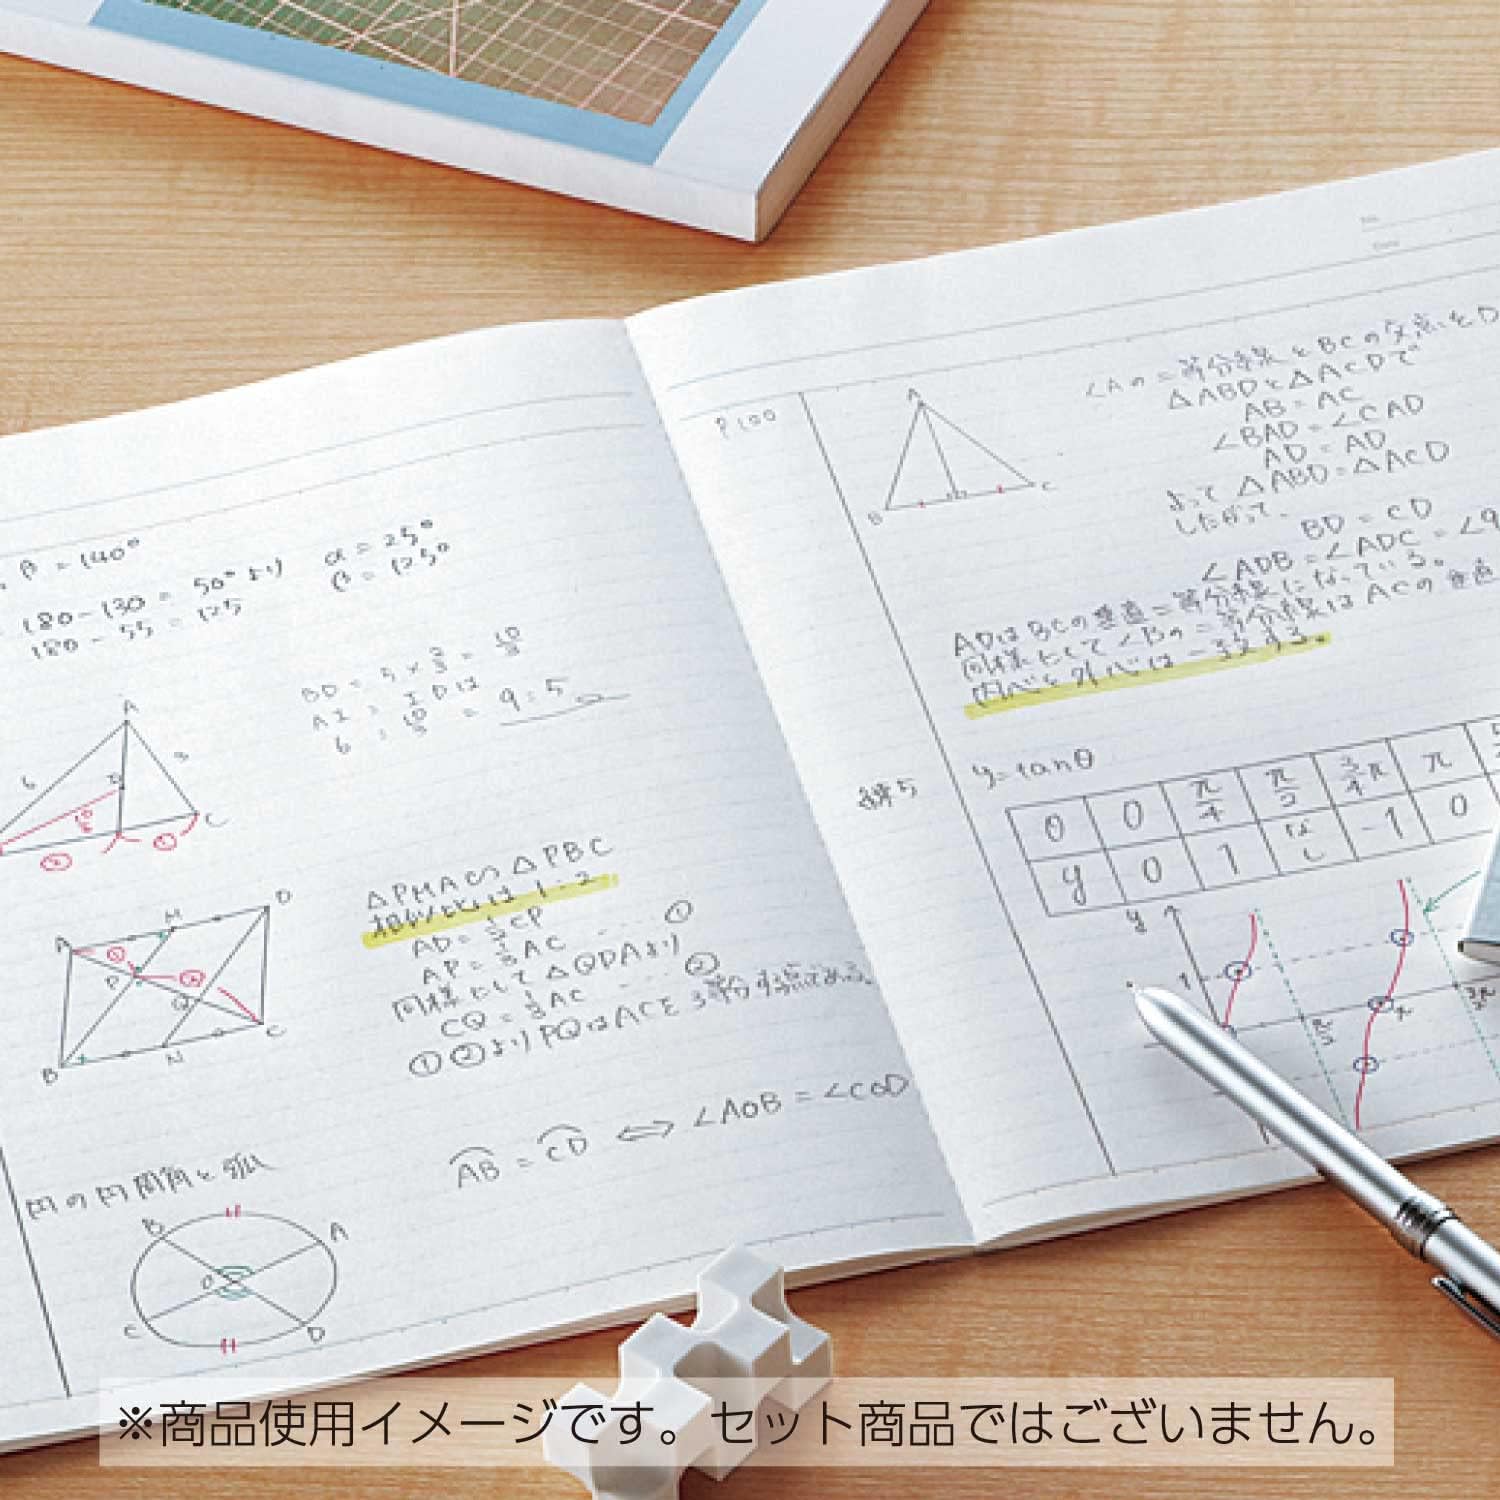 β = 140°
180 - 130 = 50° より
180 - 55 = 125
α = 25°
β = 125°
BD = 5 × 2/3 = 10/3
AI : ID は
6 : 10/3 = 9:5
A
6
3
C
②
①
△PMA∽△PBC
相似比は 1:2
AD = 1/2 CP
AP = 1/3 AC ‥‥ ①
同様にして △QDAより
CQ = 1/3 AC ‥‥ ②
①②より PQはACを3等分する点である。
A
M
D
P
Q
B
N
C
AB = CD ⇔ ∠AOB = ∠COD
円の円周角と弧
B
A
O
C
D
No.
Date
P100
A
B
C
∠Aの二等分線とBCの交点をD
△ABDと△ACDで
AB = AC
∠BAD = ∠CAD
AD = AD
よって △ABD = △ACD
したがって、
BD = CD
∠ADB = ∠ADC = ∠9
ADはBCの垂直二等分線になっている。
同様にして∠Bの二等分線はACの垂直
内心と外心は一致する。
y = tanθ
θ 0 π/4 π/2 3/4π π
y 0 1 なし -1 0
y
1
π/2
π
3π/2
※商品使用イメージです。セット商品ではございません。